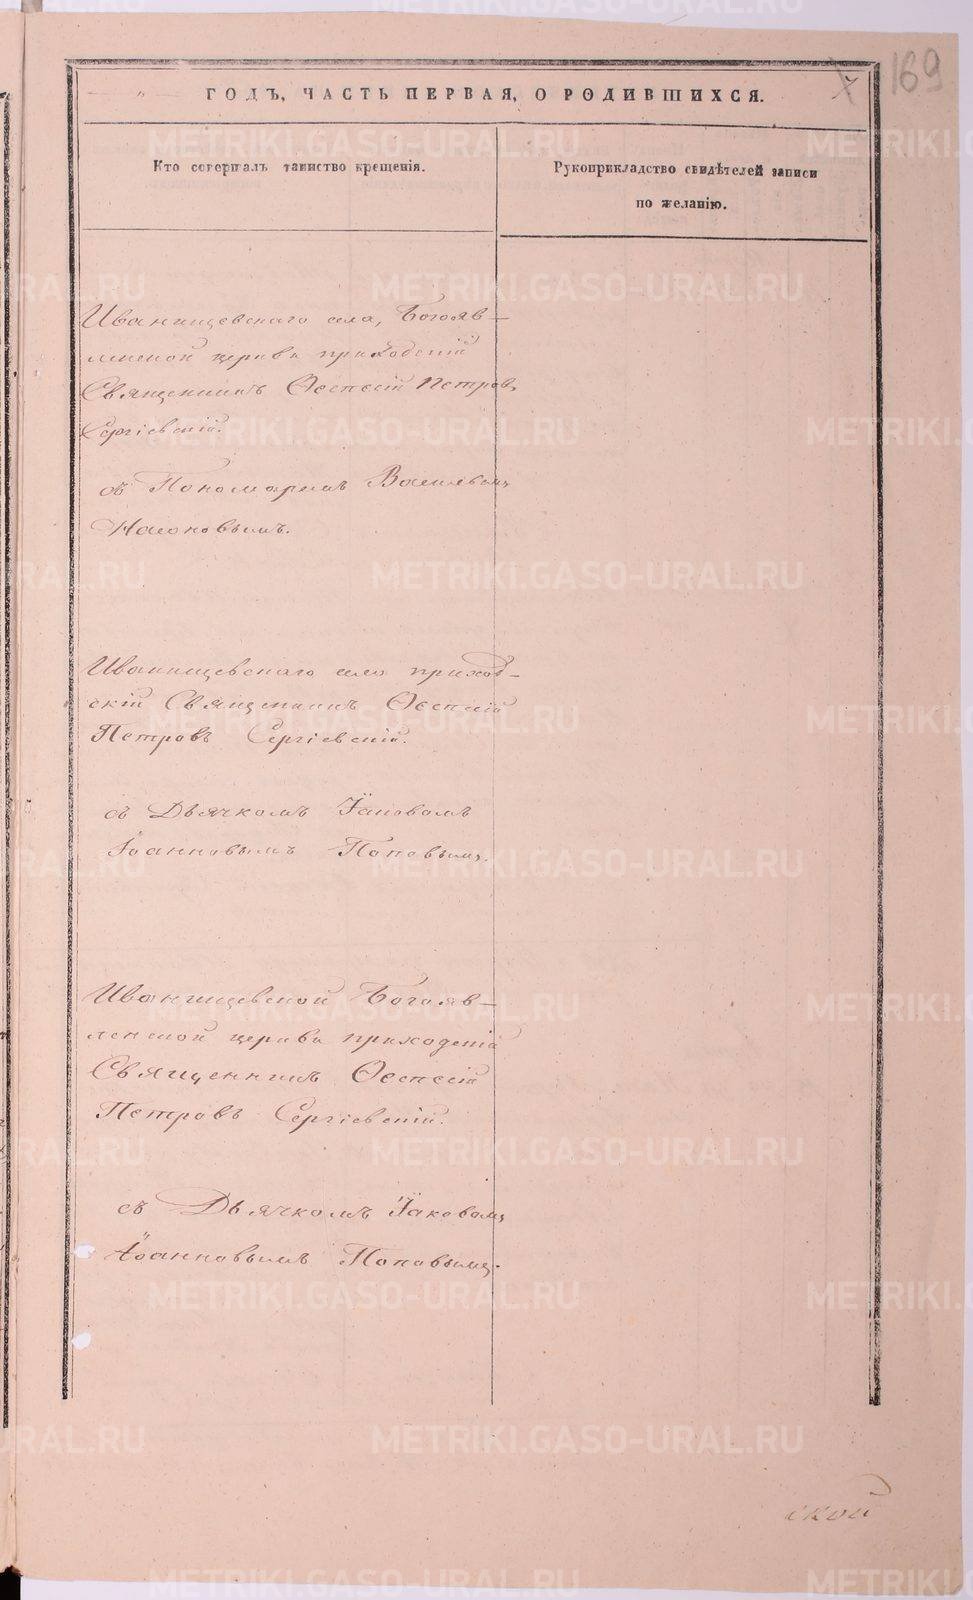 169
ГОДЪ, ЧАСТЬ ПЕРВАЯ, О РОДИВШИХСЯ.
Кто совершалъ таинство крещенія.
Рукоприкладство свидѣтелей записи
по желанію.
Иванищевскаго села, Богояв-
ленской церкви приходскій
Священникъ Петровъ
Сергіевскій.
съ Пономаремъ Василіемъ
Иванищевскаго села приход-
скій Священникъ
Петровъ Сергіевскій.
съ Дьячкомъ Іаковомъ
Іоанновымъ Поповымъ.
Иванищевской Богояв-
ленской церкви приходскій
Священникъ
Петровъ Сергіевскій.
съ Дьячкомъ Іаковомъ
Іоанновымъ Поповымъ.
ской
METRIKI.GASO-URAL.RU